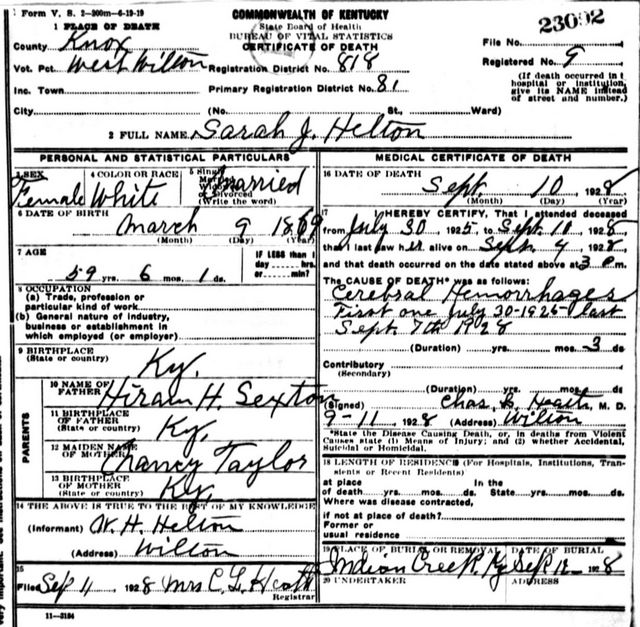 Form V. S. 2-200m-6-19-19
COMMONWEALTH OF KENTUCKY
State Board of Health
BUREAU OF VITAL STATISTICS
CERTIFICATE OF DEATH
1 PLACE OF DEATH
County Knox
File No. 23092
Vot. Pct. West Wilton Registration District No. 818 Registered No. 9
Inc. Town Primary Registration District No. 81
(If death occurred in a hospital or institution, give its NAME instead of street and number.)
City (No. St. Ward)
2 FULL NAME Sarah J. Helton
PERSONAL AND STATISTICAL PARTICULARS
3 SEX 4 COLOR OR RACE 5 Single Married Widowed or Divorced (Write the word)
Female White Married
6 DATE OF BIRTH
March 9 1869
(Month) (Day) (Year)
7 AGE
59 yrs. 6 mos. 1 ds.
IF LESS than 1 day hrs. or min.?
8 OCCUPATION
(a) Trade, profession or
particular kind of work
(b) General nature of industry,
business or establishment in
which employed (or employer)
9 BIRTHPLACE
(State or country) Ky.
PARENTS
10 NAME OF
FATHER Hiram H. Sexton
11 BIRTHPLACE
OF FATHER
(State or country) Ky.
12 MAIDEN NAME
OF MOTHER Nancy Taylor
13 BIRTHPLACE
OF MOTHER
(State or country) Ky.
14 THE ABOVE IS TRUE TO THE BEST OF MY KNOWLEDGE
(Informant) W. H. Helton
(Address) Wilton
15
Filed Sep 11 1928 Mrs C. L. Heath
Registrar
11-3184
MEDICAL CERTIFICATE OF DEATH
16 DATE OF DEATH
Sept. 10 1928
(Month) (Day) (Year)
17 I HEREBY CERTIFY, That I attended deceased
from July 30 1925 to Sept 10 1928
that I last saw her alive on Sept. 9 1928
and that death occurred on the date stated above at 3 P.m.
The CAUSE OF DEATH* was as follows:
Cerebral Hemorrhages
First one July 30-1925 last
Sept. 7th 1928
(Duration) yrs. mos. 3 ds
Contributory
(Secondary)
(Duration) yrs. mos. ds
(Signed) Chas. Heath, M. D.
9-11-1928 (Address) Wilton
*State the Disease Causing Death, or, in deaths from Violent
Causes state (1) Means of Injury; and (2) whether Accidental,
Suicidal or Homicidal.
18 LENGTH OF RESIDENCE (For Hospitals, Institutions, Transients or Recent Residents)
at place In the
of death yrs. mos. ds. State yrs. mos. ds
Where was disease contracted,
if not at place of death?
Former or
usual residence
19 PLACE OF BURIAL OR REMOVAL DATE OF BURIAL
Indian Creek, Ky Sep 12 1928
20 UNDERTAKER ADDRESS